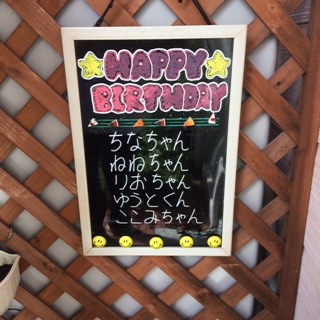 HAPPY
BIRTHDAY
ちなちゃん
ねねちゃん
りおちゃん
ゆうとくん
ここみちゃん